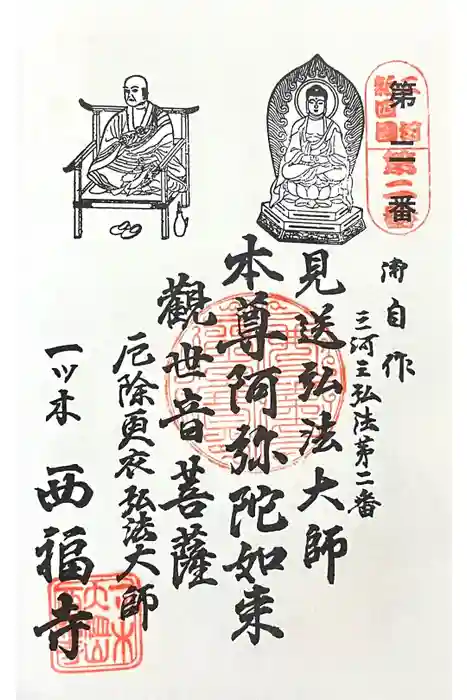 第二番
三河新四國
第二番
御自作
三河三弘法第二番
見送弘法大師
本尊阿弥陀如来
觀世音菩薩
厄除更衣弘法大師
一ツ木 西福寺